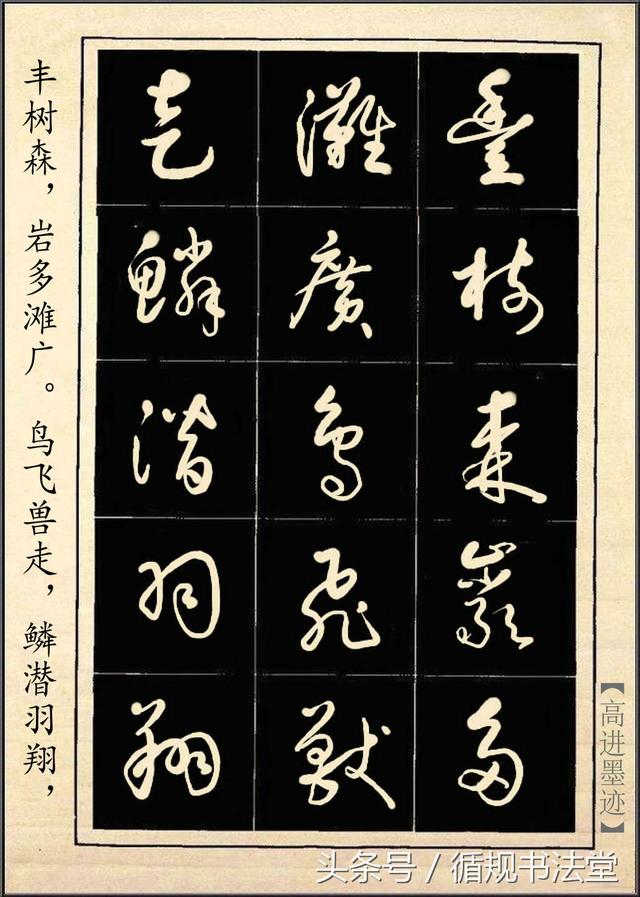 豐樹森巖多
灘廣鳥飛獸
走鱗潛羽翔
丰树森，岩多滩广。鸟飞兽走，鳞潜羽翔，
【高进墨迹】
头条号 / 循规书法堂